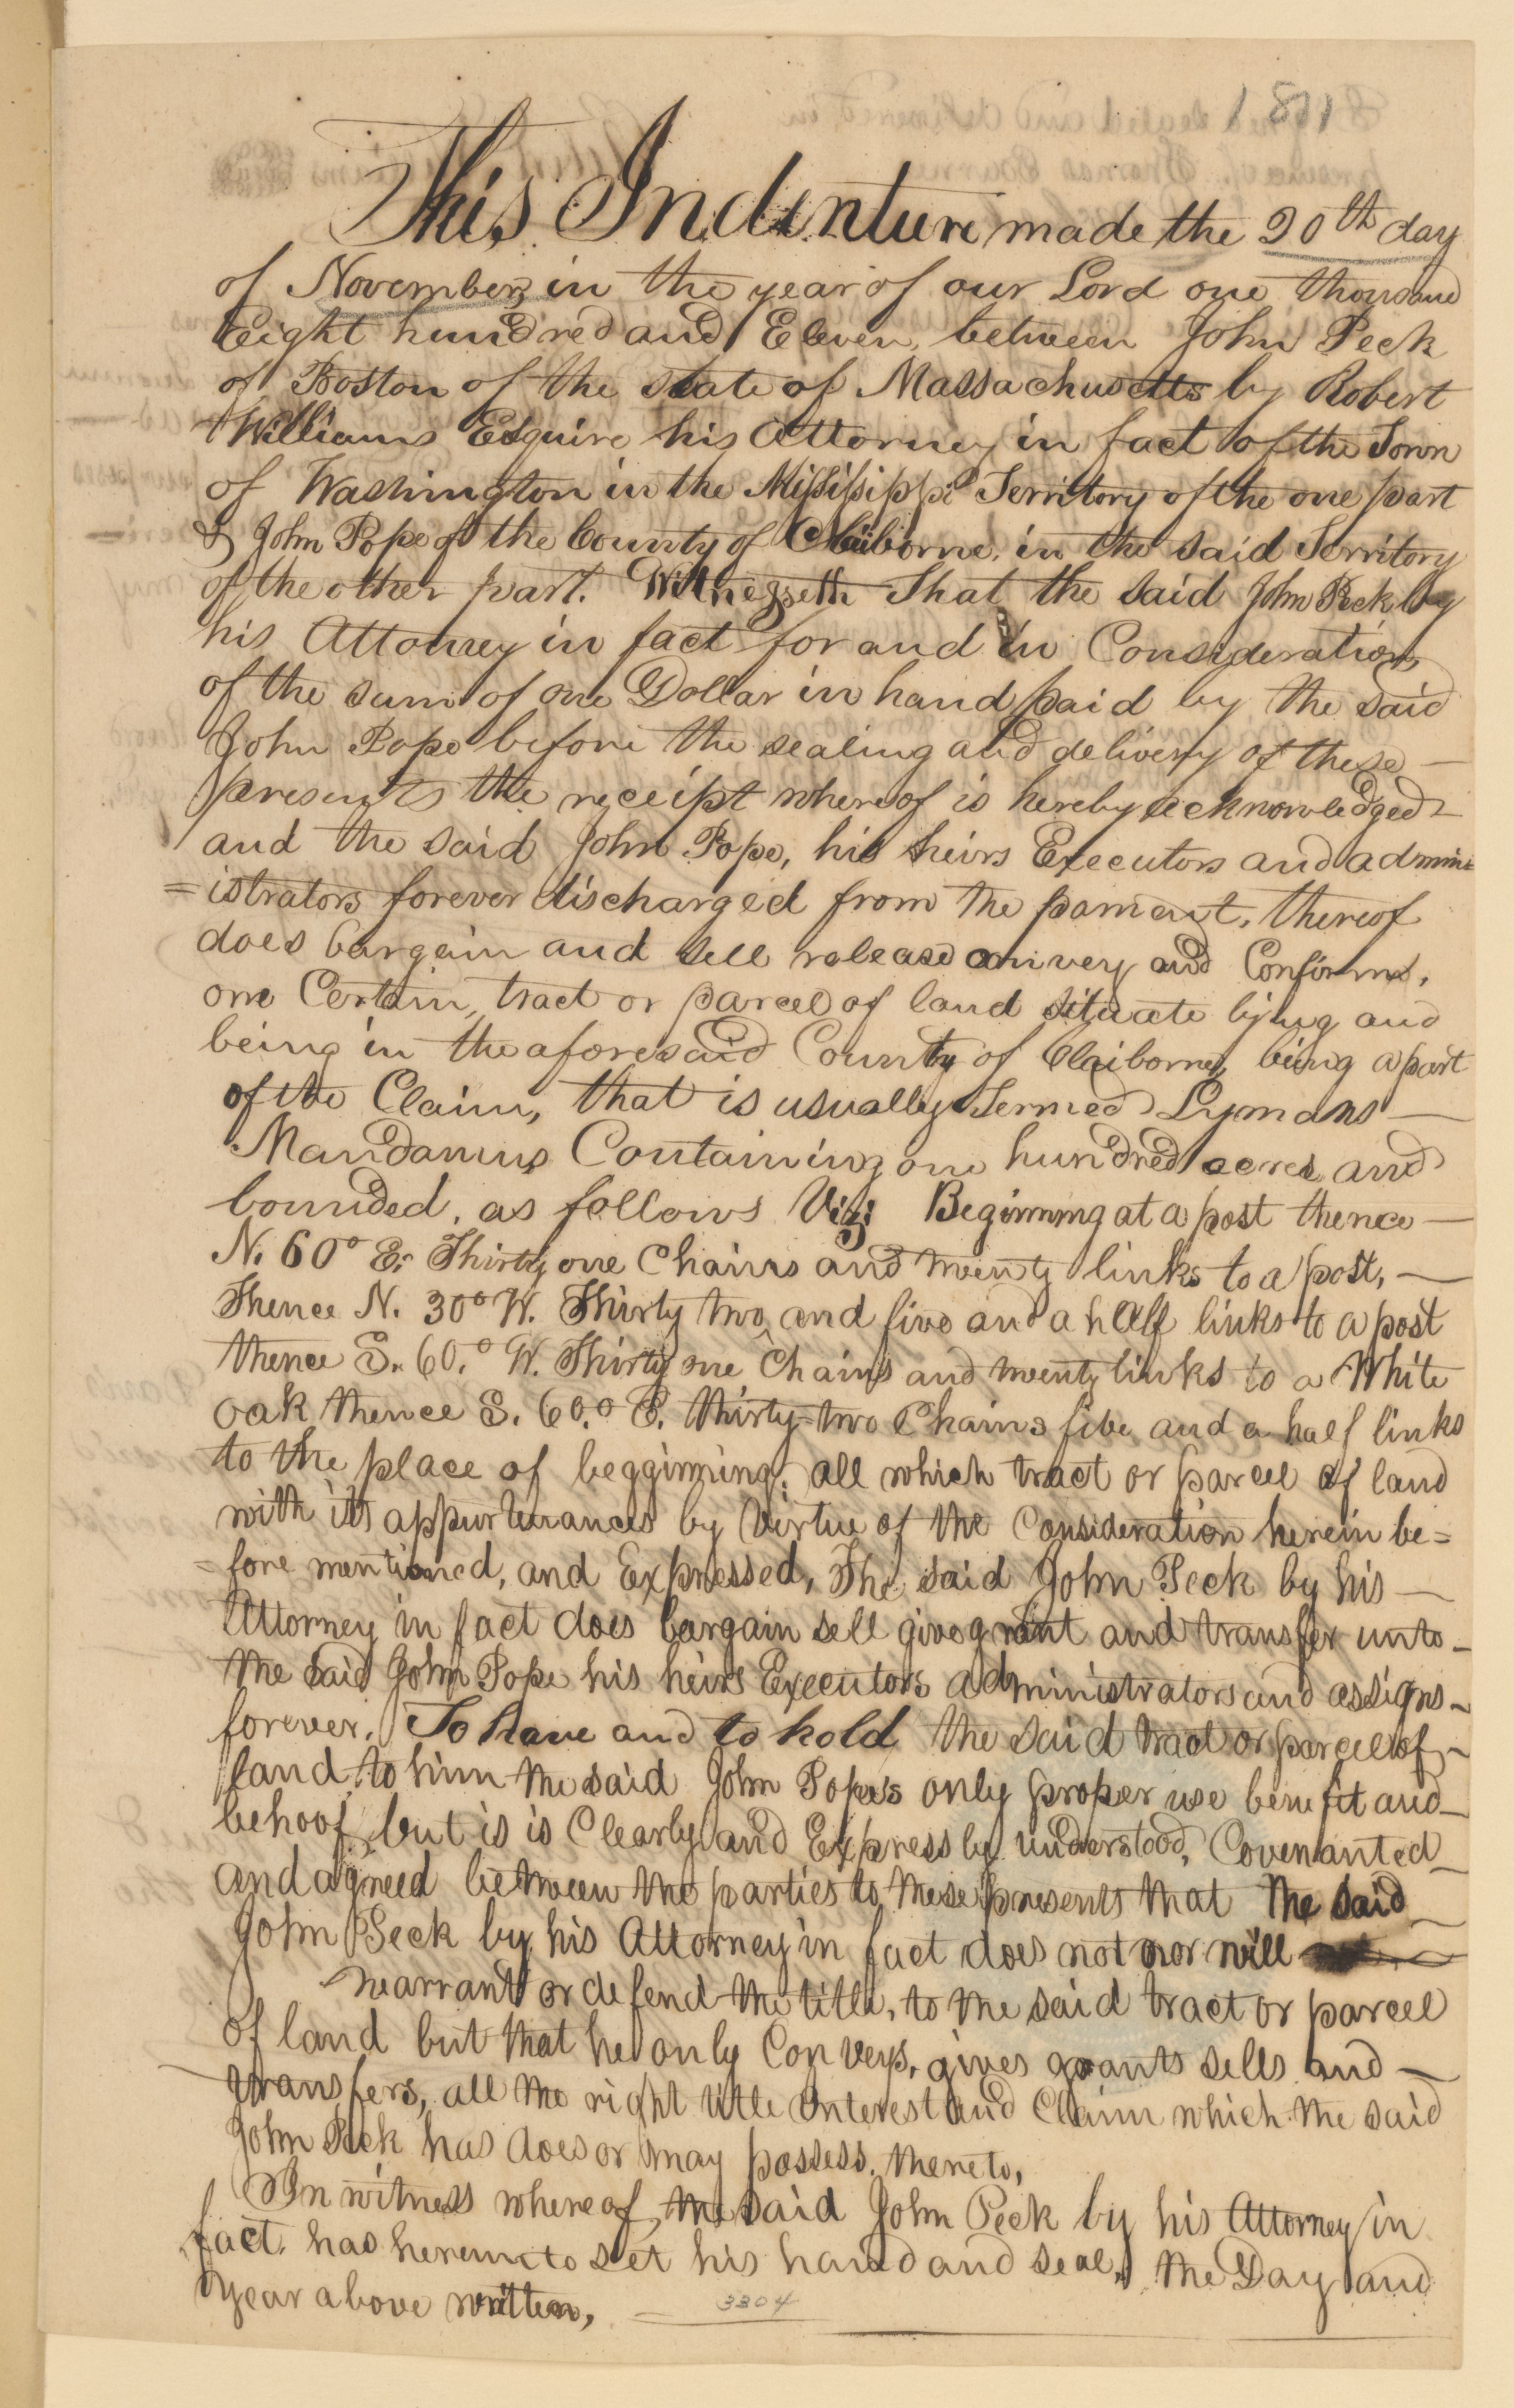 1811
This Indenture made the 20th day
of November, in the year of our Lord one thousand
Eight hundred and Eleven, between John Peck
of Boston of the state of Massachusetts by Robert
Williams Esquire his Attorney in fact of the Town
of Washington in the Mississippi Territory of the one part
& John Pope of the County of Claiborne, in the said Territory
of the other part. Witnesseth That the said John Peck by
his Attorney in fact for and in Consideration
of the sum of one Dollar in hand paid by the said
John Pope before the sealing and delivery of these —
presents the receipt whereof is hereby acknowledged —
and the said John Pope, his heirs Executors and admin=
=istrators forever discharged from the pament, thereof
does bargain and sell release convey and Confirm,
one Certain, tract or parcel of land situate lying and
being in the aforesaid County of Claiborne, being a part
of the Claim, that is usually Termed Lymans —
Mandamus Containing one hundred acres and
bounded, as follows Viz; Beginning at a post thence —
N. 60° E. Thirty one Chains and twenty links to a post, —
Thence N. 30° W. Thirty two and five and a half links to a post
thence S. 60.° W. Thirty one Chains and twenty links to a White
oak thence S. 60.° E. thirty-two Chains five and a half links
to the place of begginning; all which tract or parcel of land
with its appurtenances by Virtue of the Consideration herein be=
=fore mentioned, and Expressed, The said John Peck by his —
Attorney in fact does bargain sell give grant and transfer unto —
the said John Pope his heirs Executors administrators and assigns —
forever. To have and to hold the said tract or parcel of —
land, to him the said John Pope's only proper use benefit and —
behoof but is is Clearly and Expressly understood, Covenanted —
and agreed between the parties to these presents that the said —
John Peck by his Attorney in fact does not nor will
warrant or defend the title, to the said tract or parcel
of land but that he only Conveys, gives grants sells and —
transfers, all the right title Interest and Claim which the said
John Peck has does or may possess, thereto,
In witness whereof, the said John Peck by his Attorney in
fact, has hereunto set his hand and seal, the Day and
year above written, — 3304